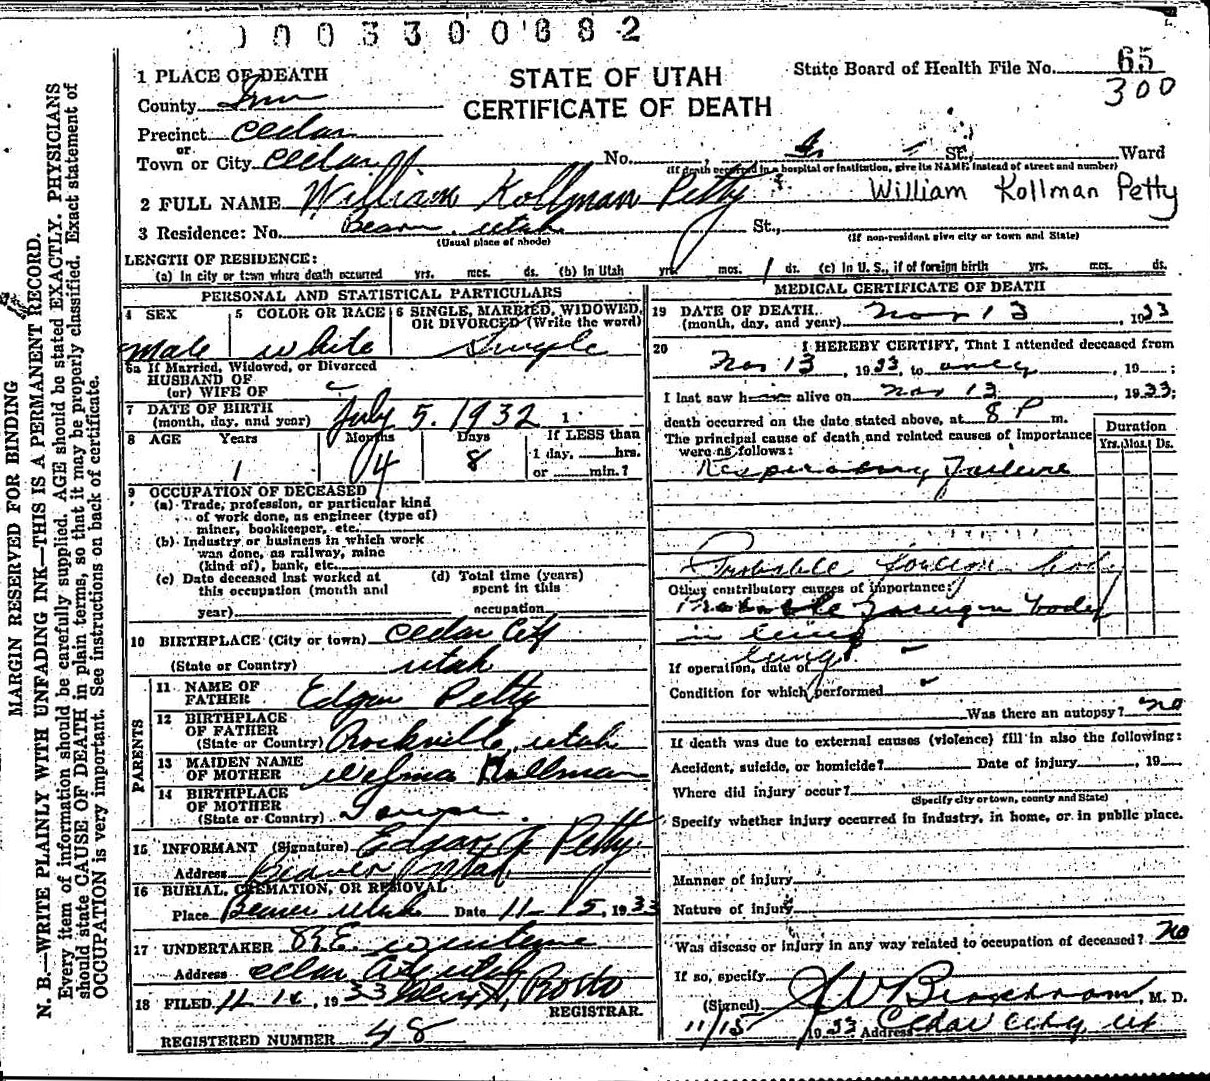 1003300682
1 PLACE OF DEATH
STATE OF UTAH
CERTIFICATE OF DEATH
State Board of Health File No. 65
300
County Iron
Precinct Cedar
or
Town or City Cedar No. St., Ward
(If death occurred in a hospital or institution, give its NAME instead of street and number)
2 FULL NAME William Kollman Petty William Kollman Petty
3 Residence: No. Utah St.,
(Usual place of abode) (If non-resident give city or town and State)
LENGTH OF RESIDENCE:
(a) In city or town where death occurred yrs. mos. ds. (b) In Utah yrs. mos. 1 ds. (c) In U. S., if of foreign birth yrs. mos. ds.
PERSONAL AND STATISTICAL PARTICULARS
4 SEX 5 COLOR OR RACE 6 SINGLE, MARRIED, WIDOWED, OR DIVORCED (Write the word)
Male White Single
6a If Married, Widowed, or Divorced
HUSBAND OF
(or) WIFE OF
7 DATE OF BIRTH
(month, day, and year) July 5. 1932 1
8 AGE Years Months Days If LESS than
1 4 8 1 day, hrs.
or min.?
9 OCCUPATION OF DECEASED
(a) Trade, profession, or particular kind
of work done, as engineer (type of)
miner, bookkeeper, etc.
(b) Industry or business in which work
was done, as railway, mine
(kind of), bank, etc.
(c) Date deceased last worked at (d) Total time (years)
this occupation (month and spent in this
year) occupation
10 BIRTHPLACE (City or town) Cedar City
(State or Country) Utah
PARENTS
11 NAME OF
FATHER Edgar Petty
12 BIRTHPLACE
OF FATHER
(State or Country) Rockville, Utah
13 MAIDEN NAME
OF MOTHER Welma Kollman
14 BIRTHPLACE
OF MOTHER
(State or Country)
15 INFORMANT (Signature) Edgar A Petty
Address Beaver Utah
16 BURIAL, CREMATION, OR REMOVAL
Place Beaver Utah Date 11-15, 1933
17 UNDERTAKER
Address Cedar City Utah
18 FILED 11 , 1933
REGISTRAR.
REGISTERED NUMBER 48
MEDICAL CERTIFICATE OF DEATH
19 DATE OF DEATH
(month, day, and year) Nov 13, 1933
20 I HEREBY CERTIFY, That I attended deceased from
Nov 13, 1933, to only, 19 ;
I last saw h alive on Nov 13, 1933;
death occurred on the date stated above, at 8 P m.
The principal cause of death and related causes of importance
were as follows:
Duration
Yrs. Mos. Ds.
Respiratory Failure
Probable foreign body
Other contributory causes of importance:
Probable foreign body
in lung
lung
If operation, date of
Condition for which performed
Was there an autopsy? no
If death was due to external causes (violence) fill in also the following:
Accident, suicide, or homicide? Date of injury , 19
Where did injury occur?
(Specify city or town, county and State)
Specify whether injury occurred in industry, in home, or in public place.
Manner of injury
Nature of injury
Was disease or injury in any way related to occupation of deceased? no
If so, specify
(Signed) , M. D.
11/15 1933 Address Cedar City Ut
MARGIN RESERVED FOR BINDING
N. B.—WRITE PLAINLY WITH UNFADING INK—THIS IS A PERMANENT RECORD.
Every item of information should be carefully supplied. AGE should be stated EXACTLY. PHYSICIANS
should state CAUSE OF DEATH in plain terms, so that it may be properly classified. Exact statement of
OCCUPATION is very important. See instructions on back of certificate.